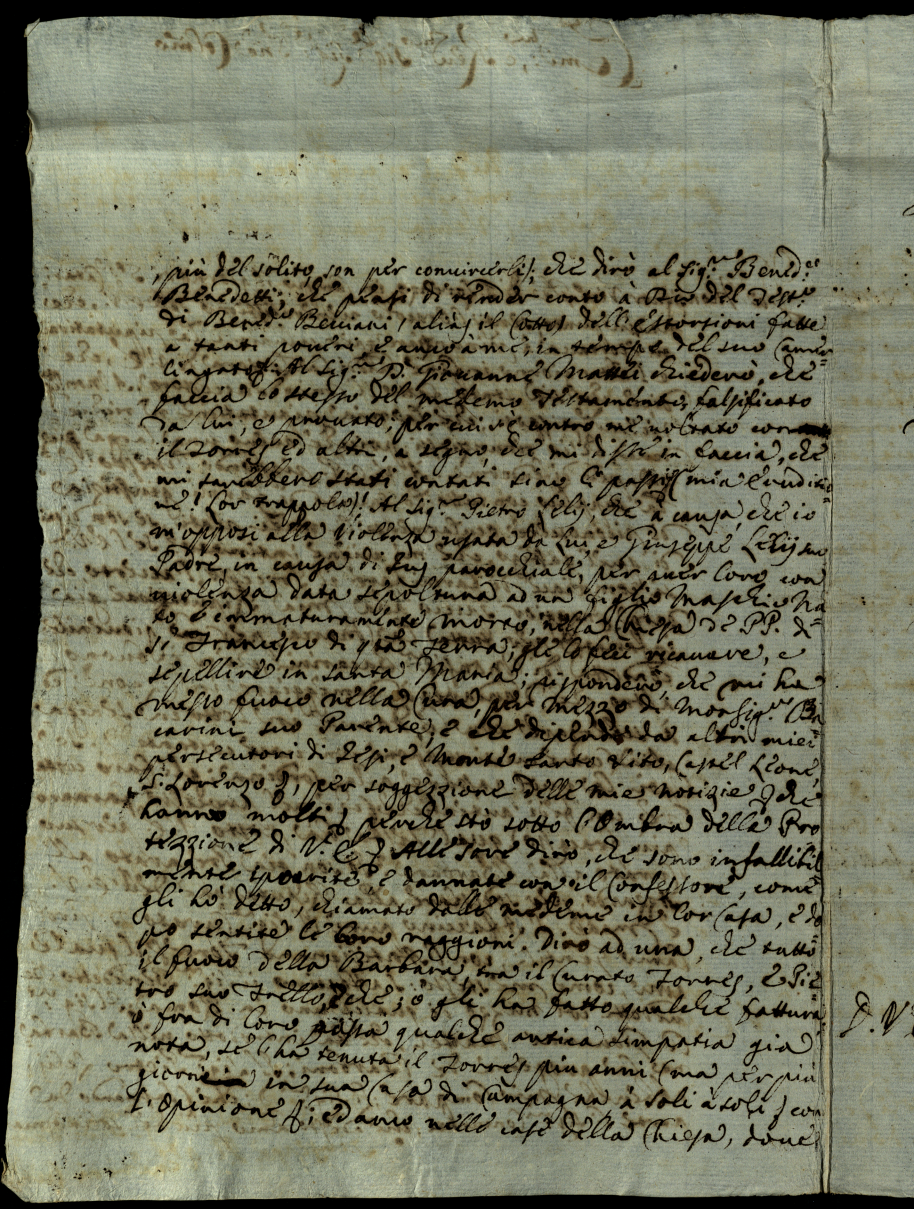 più del solito, son per convincerli; che dirò al Sig.re Bened.o
Benedetti; che pensi di render conto à Dio del Test.o
di Bened.o Beviani / alias il Cotto / dell'estorsioni fatte
a tanti poveri, e anco à me, in tempo del suo
Al Sig.re D. Giovanne Mattei chiederò, che
faccia lo stesso del medemo Testamento, falsificato
da lui, e procurato; per cui s'è contro me
il Torres ed altri, a segno, che mi disse in faccia, che
mi sarebbero stati contati sino li passi (mia eruditio=
ne! Lor trappole)! Al Sig.re Pietro Lelij, che à causa, che io
m'opposi alla violenza usata da lui, e Giuseppe Lelij suo
Padre, in causa di Jus parocchiale, per aver loro con
violenza data sepoltura ad un figlio Maschio Na
to, e immaturamente morto, nella Chiesa de PP. di
S. Francesco di q.ta Terra; gle lo feci ricavare, e
sepellire in Santa Maria; risponderò, che mi ha
messo fuoco nella Cura, per mezzo di Monsig.re
carini suo Parente, e che dipende da altri miei
persecutori di Jesi, e Monte Santo Vito, Castel Leone
S. Lorenzo &, per soggezzione delle mie notizie) che
hanno molti) perche stò sotto l'Ombra della Pro
tezzione di V. E.) Alle Sore dirò, che sono infallibil
mente ipocrite, e dannate con il Confessore, come
gli hò detto, chiamato dalle medeme in lor Casa, e do
po sentite le loro raggioni. Dirò ad una, che tutto
il fuoco della Barbara, tra il Curato Torres, e Pie
tro suo Frello, è che; ò gli ha fatto qualche fattura
ò fra di loro passa qualche antica simpatia già
nota, se l'ha tenuta il Torres più anni (ma per più
giorni in sua Casa di Campagna à soli à soli) con
l'opinione &; ed anco nelle case della Chiesa, dove